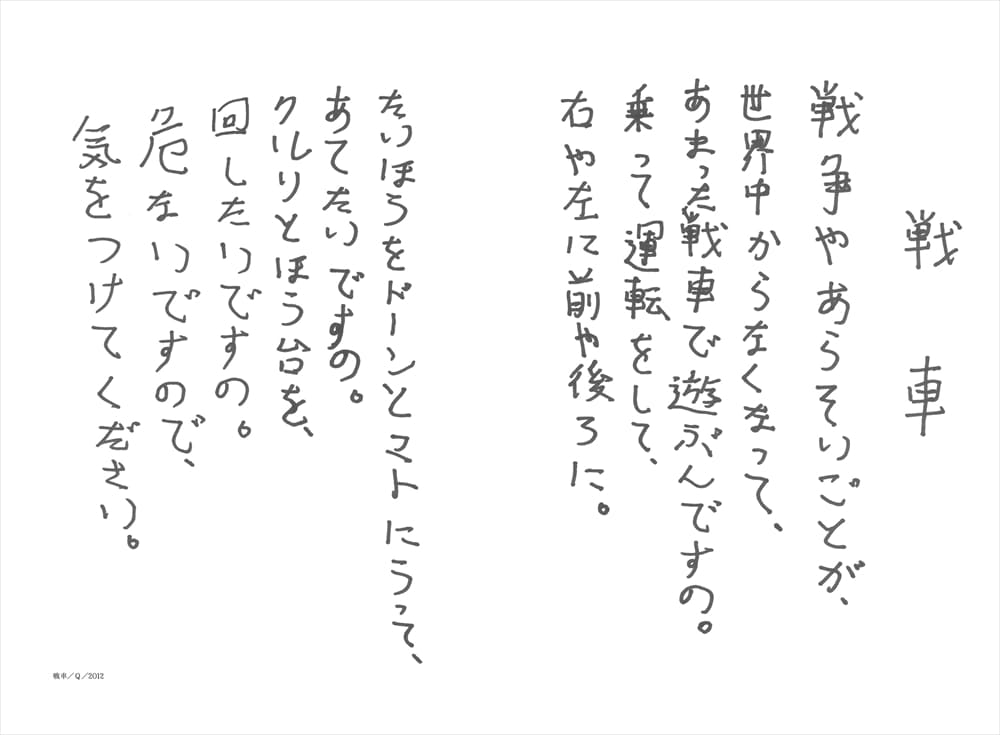 戦車
戦争やあらそいごとが、
世界中からなくなって、
あまった戦車で遊ぶんですの。
乗って運転をして、
右や左に前や後ろに。
たいほうをドーンとマトにうって、
あてたいですの。
クルリとほう台を、
回したいですの。
危ないですので、
気をつけてください。
戦車／Q／2012